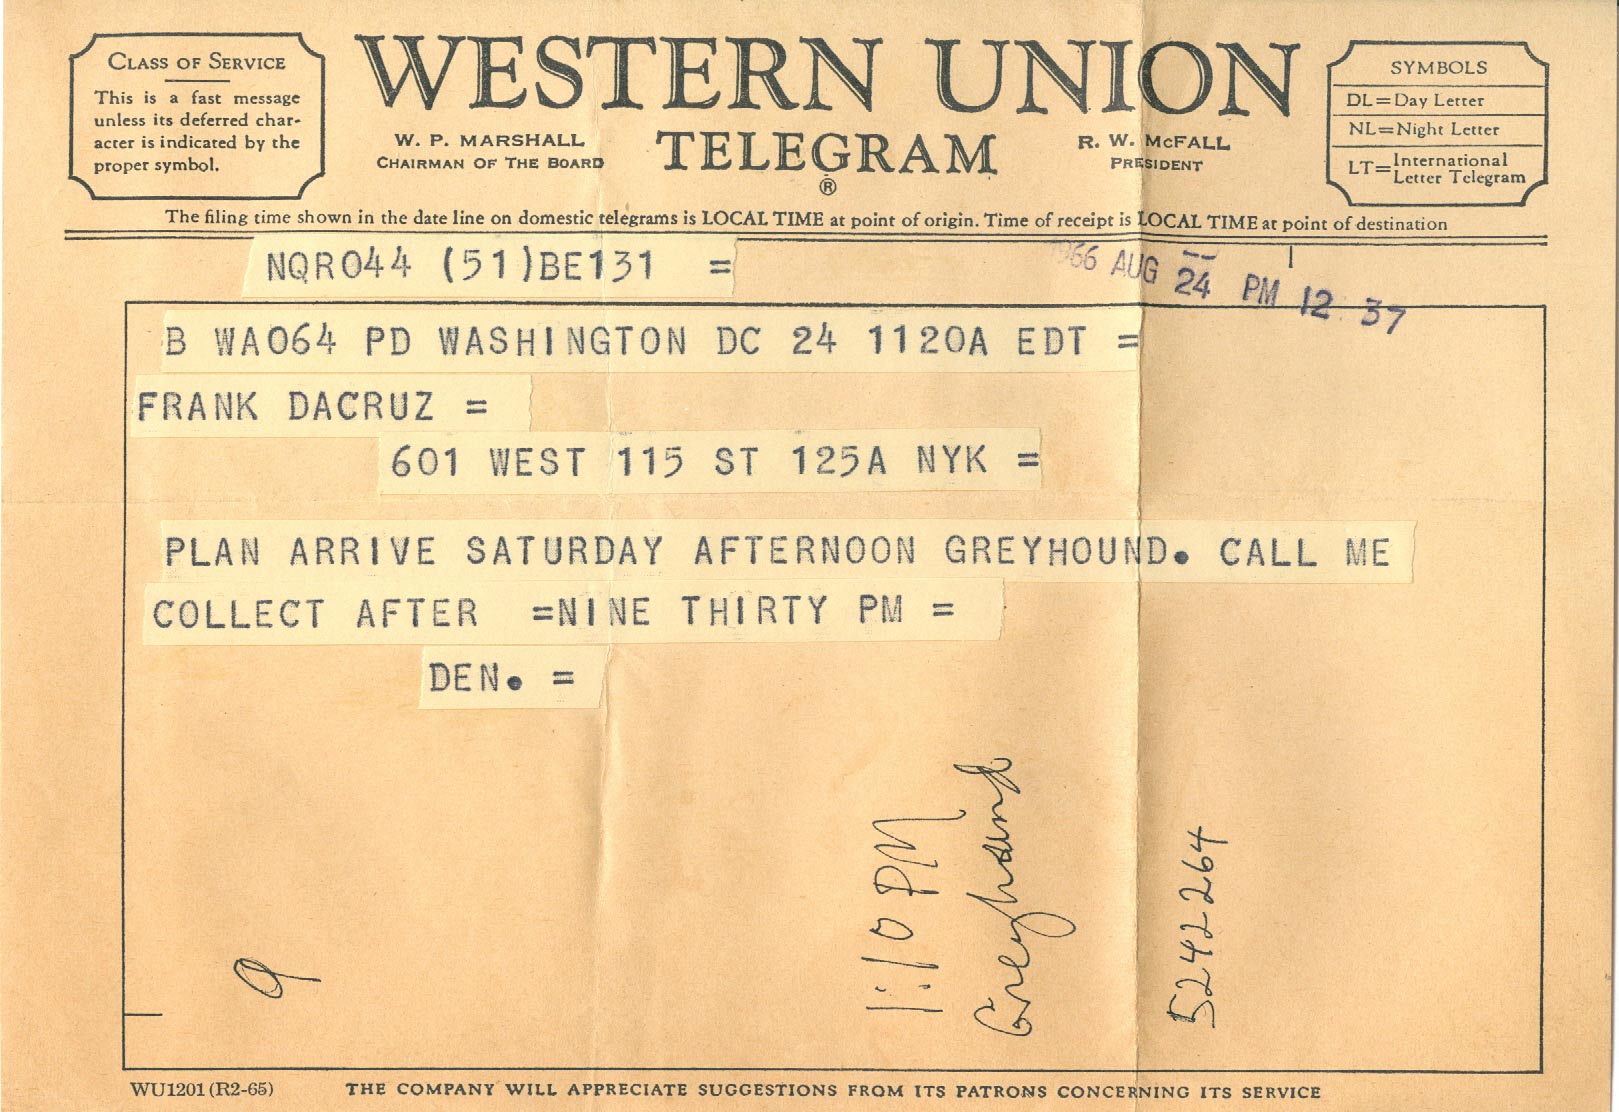 CLASS OF SERVICE
This is a fast message
unless its deferred char-
acter is indicated by the
proper symbol.
WESTERN UNION
TELEGRAM
®
W. P. MARSHALL
CHAIRMAN OF THE BOARD
R. W. McFALL
PRESIDENT
SYMBOLS
DL=Day Letter
NL=Night Letter
LT=International Letter Telegram
The filing time shown in the date line on domestic telegrams is LOCAL TIME at point of origin. Time of receipt is LOCAL TIME at point of destination
NQR044 (51)BE131 =
1966 AUG 24 PM 12 37
B WA064 PD WASHINGTON DC 24 1120A EDT =
FRANK DACRUZ =
601 WEST 115 ST 125A NYK =
PLAN ARRIVE SATURDAY AFTERNOON GREYHOUND. CALL ME
COLLECT AFTER =NINE THIRTY PM =
DEN. =
1:10 PM
Greyhound
5242264
9
WU1201 (R2-65)
THE COMPANY WILL APPRECIATE SUGGESTIONS FROM ITS PATRONS CONCERNING ITS SERVICE